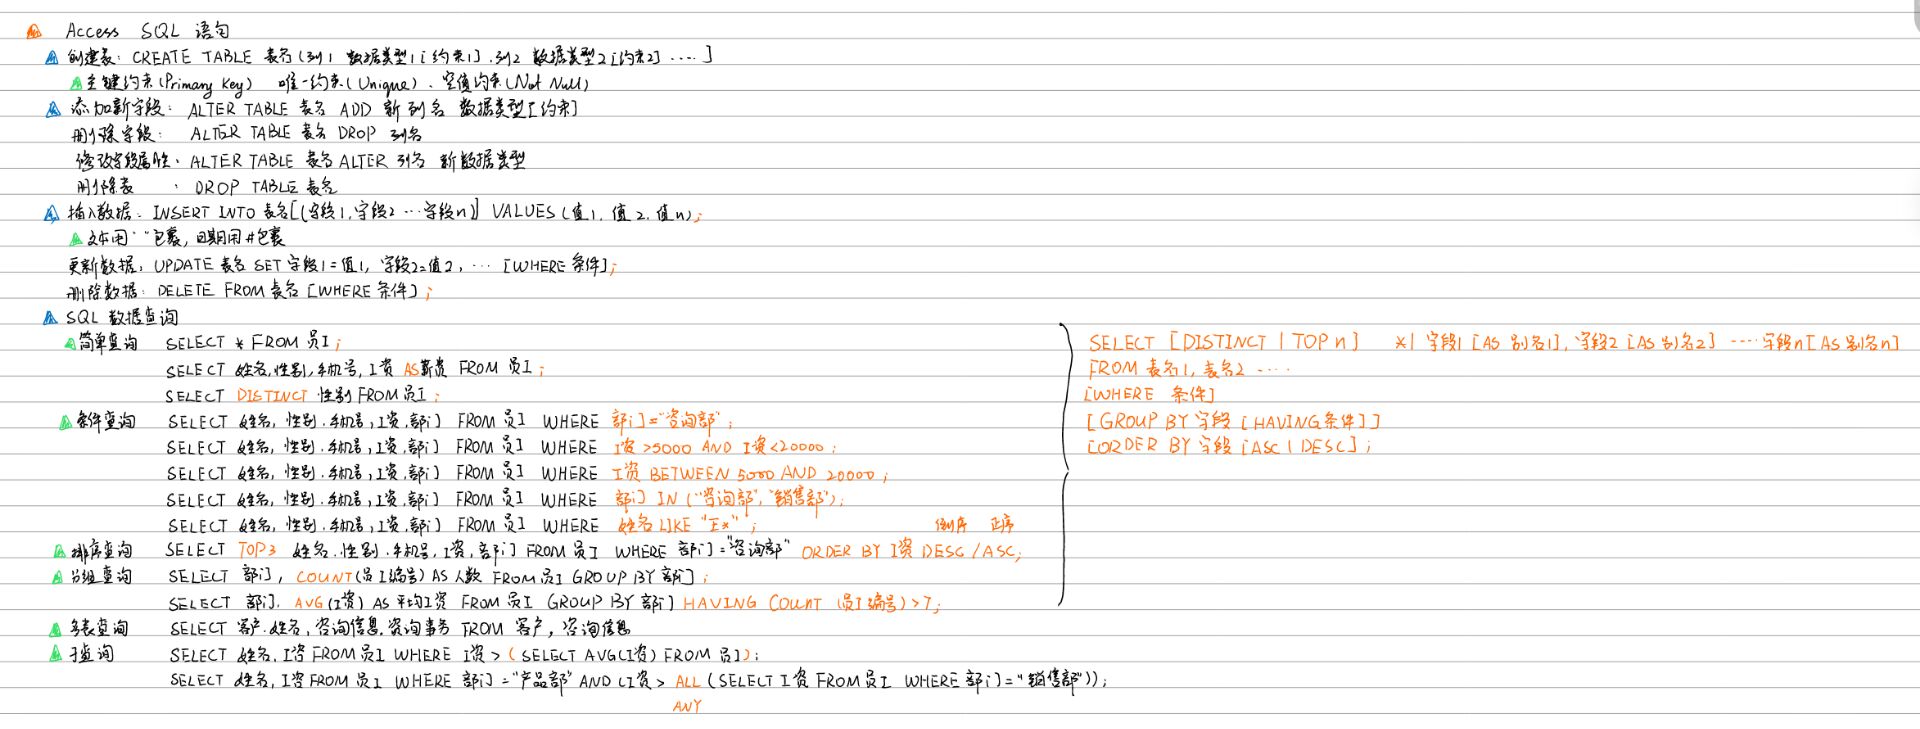 Access SQL 语句
创建表: CREATE TABLE 表名(列1 数据类型1[约束1],列2 数据类型2[约束2] ····]
主键约束(Primary Key) 唯一约束(Unique)、空值约束(Not Null)
添加新字段: ALTER TABLE 表名 ADD 新列名 数据类型[约束]
删除字段: ALTER TABLE 表名 DROP 列名
修改字段属性: ALTER TABLE 表名 ALTER 列名 新数据类型
删除表 : DROP TABLE 表名
插入数据: INSERT INTO 表名[(字段1,字段2···字段n)] VALUES(值1, 值2, 值n);
文本用""包裹, 日期用#包裹
更新数据: UPDATE 表名 SET 字段1=值1, 字段2=值2, ··· [WHERE 条件];
删除数据: DELETE FROM 表名 [WHERE 条件];
SQL 数据查询
简单查询 SELECT * FROM 员工;
SELECT 姓名,性别,手机号,工资 AS薪资 FROM 员工;
SELECT DISTINCT 性别 FROM 员工;
条件查询 SELECT 姓名, 性别,手机号,工资,部门 FROM 员工 WHERE 部门="咨询部";
SELECT 姓名, 性别,手机号,工资,部门 FROM 员工 WHERE 工资>5000 AND 工资<20000;
SELECT 姓名, 性别,手机号,工资,部门 FROM 员工 WHERE 工资 BETWEEN 5000 AND 20000;
SELECT 姓名, 性别,手机号,工资,部门 FROM 员工 WHERE 部门 IN ("咨询部","销售部");
SELECT 姓名, 性别,手机号,工资,部门 FROM 员工 WHERE 姓名 LIKE "王*";
倒序 正序
排序查询 SELECT TOP3 姓名,性别,手机号,工资,部门 FROM 员工 WHERE 部门="咨询部" ORDER BY 工资 DESC/ASC;
分组查询 SELECT 部门, COUNT(员工编号) AS 人数 FROM 员工 GROUP BY 部门;
SELECT 部门, AVG(工资) AS 平均工资 FROM 员工 GROUP BY 部门 HAVING COUNT (员工编号)>7;
多表查询 SELECT 客户.姓名, 咨询信息.咨询事务 FROM 客户, 咨询信息
子查询 SELECT 姓名,工资 FROM 员工 WHERE 工资 > (SELECT AVG(工资) FROM 员工);
SELECT 姓名,工资 FROM 员工 WHERE 部门="产品部" AND (工资> ALL (SELECT 工资 FROM 员工 WHERE 部门="销售部"));
ANY
SELECT [DISTINCT | TOP n] *| 字段1 [AS 别名1], 字段2 [AS 别名2] ···· 字段n [AS 别名n]
FROM 表名1, 表名2 ····
[WHERE 条件]
[GROUP BY 字段 [HAVING条件]]
[ORDER BY 字段 [ASC | DESC];